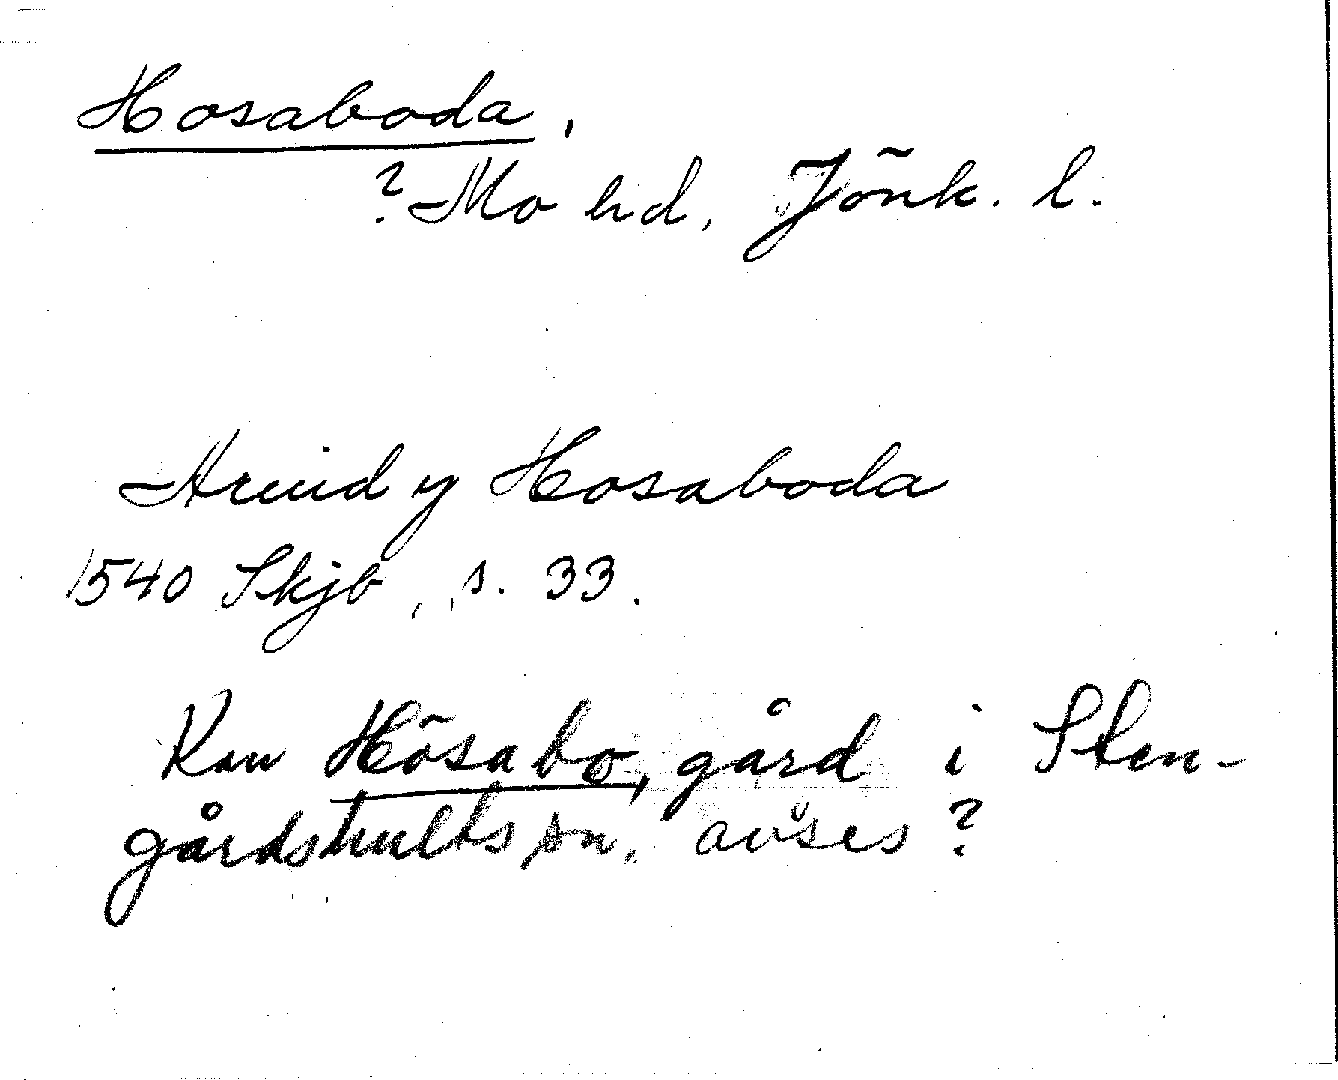 Hosaboda,
? Mo hd, Jönk. l.
Aruid y Hosaboda
1540 Skjb, s. 33.
Kan Hösabo, gård i Sten-
gårdshults sn. avses?